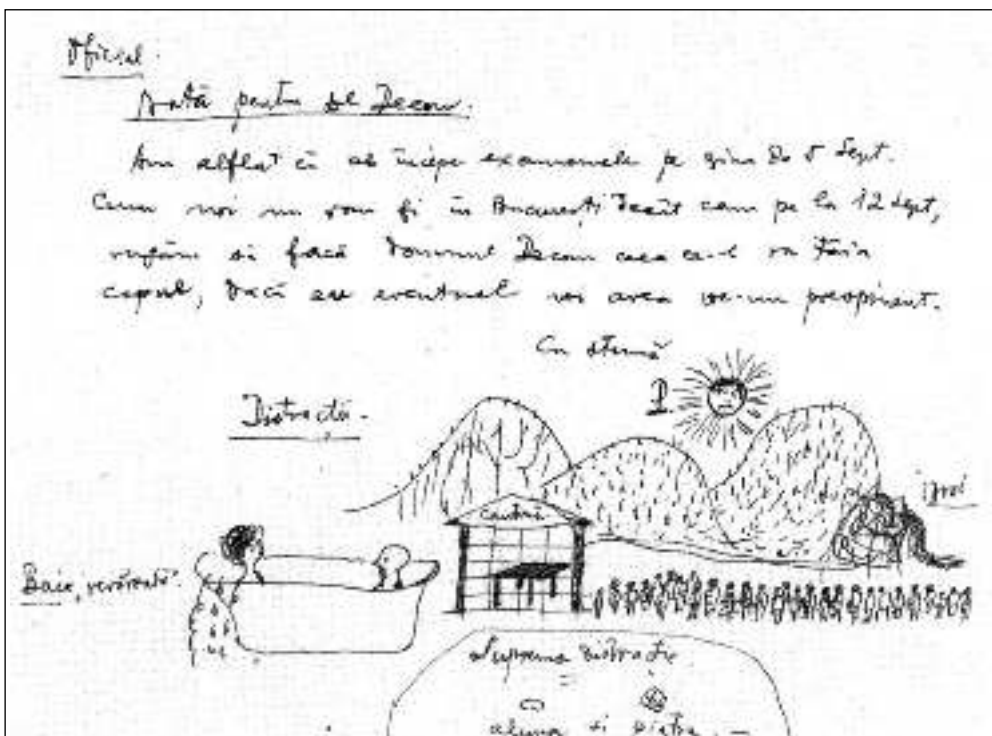 Oficial.
Notă pentru dl Decan.
Am alflat că începe examenele pe ziua de 5 Sept.
Cum noi nu vom fi în București decât cam pe la 12 Sept,
rugăm să facă domnul Decan ceea ce-l va tăia
capul, dacă eu eventual voi avea vre-un preopinant.
Cu stimă
Distractă.
Baie,
Suprema distracție
=
aluna si piatra, -